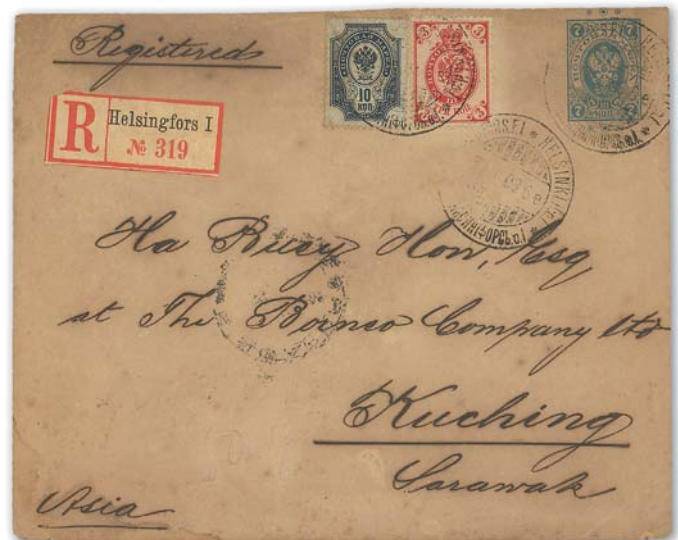 Registered
R Helsingfors I
№ 319
10
КОП
3
3
3
3
7
7
HELSINKI
Ha Buey Hon, Esq
at The Borneo Company Ltd
Kuching
Sarawak
Asia